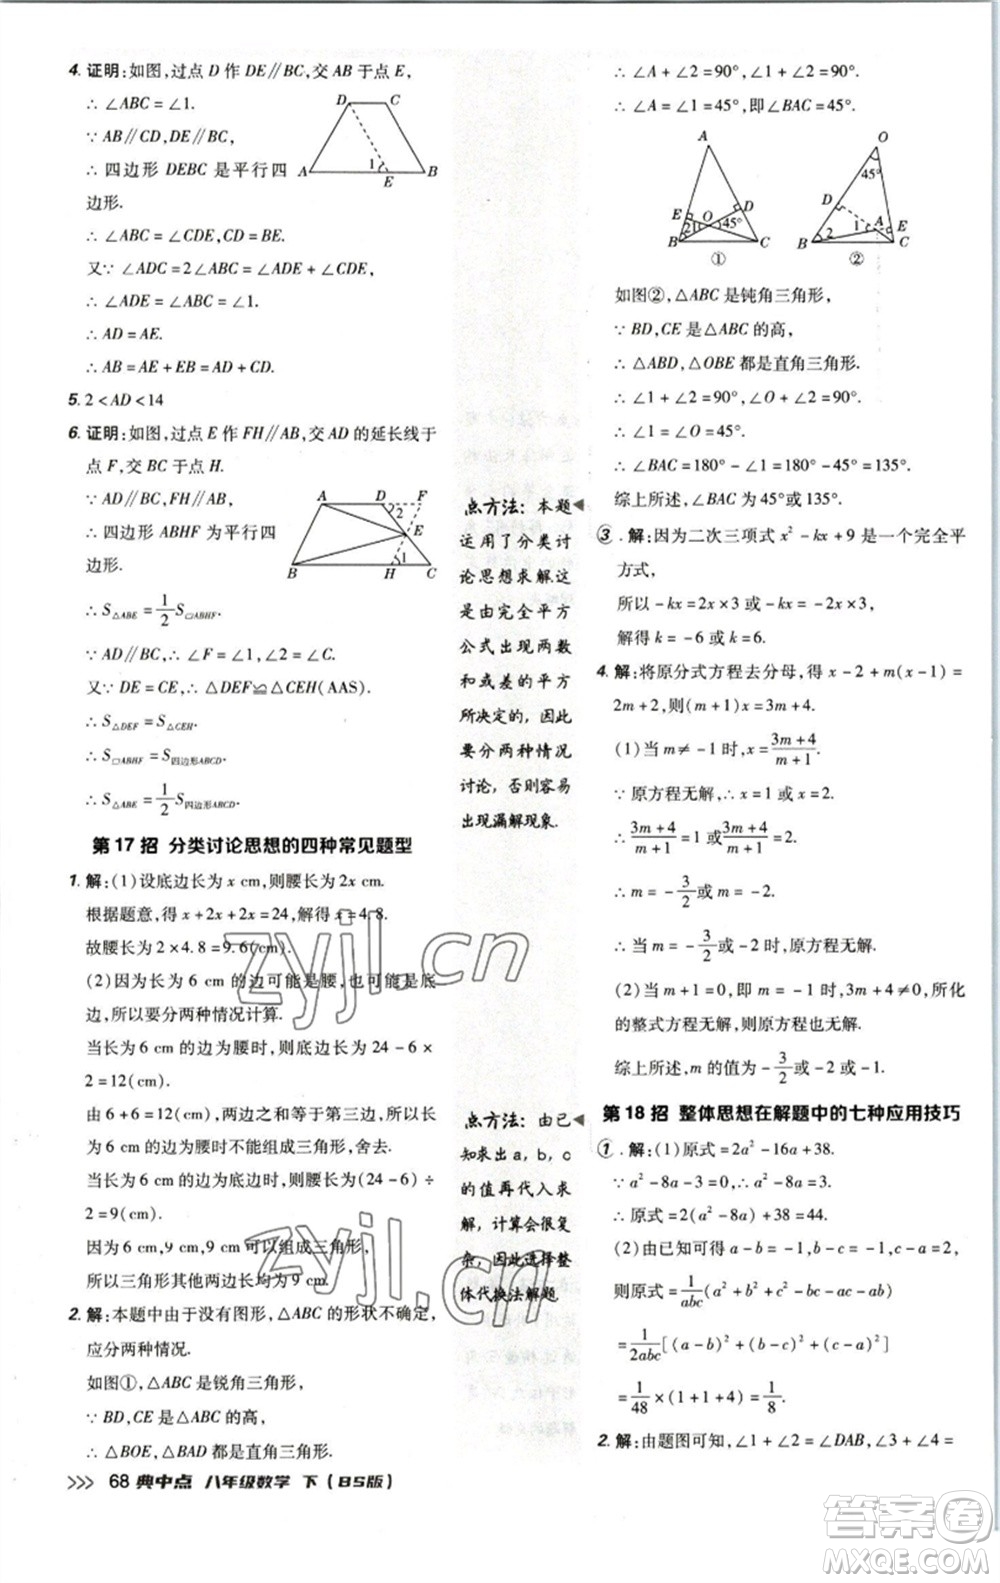 4. 证明:如图,过点 D 作 DE∥BC,交 AB 于点 E,
∴ ∠ABC=∠1.
∵ AB∥CD,DE∥BC,
∴ 四边形 DEBC 是平行四
边形.
∴ ∠ABC=∠CDE,DE=BC,EB=CD.
又∵ ∠ADC=2∠ABC,∴ ∠ABC=∠ADE,
∴ ∠ADE=∠1.
∴ AD=AE.
∴ AB=AE+EB=AD+CD.
D C
A 1 E B
5. 2<AD<14
6. 证明:如图,过点 E 作 FH∥AB,交 AD 的延长线于
点 F,交 BC 于点 H.
∵ AD∥BC,FH∥AB,
∴ 四边形 ABHF 为平行四
边形.
∴ S△ABE=1/2 S▱ABHF.
∵ AD∥BC,∴ ∠F=∠1,∠2=∠C.
又∵ DE=CE,∴ △DEF≌△CEH(AAS).
∴ S△DEF=S△CEH.
∴ S▱ABHF=S四边形ABCD.
∴ S△ABE=1/2 S四边形ABCD.
A D F
2
E
1
B H C
第 17 招 分类讨论思想的四种常见题型
1. 解:(1)设底边长为 x cm,则腰长为 2x cm.
根据题意,得 x+2x+2x=24,解得 x=4.8.
故腰长为 2×4.8=9.6(cm).
(2)因为长为 6 cm 的边可能是腰,也可能是底
边,所以要分两种情况计算.
当长为 6 cm 的边为腰时,则底边长为 24-6×
2=12(cm).
由 6+6=12,两边之和等于第三边,
故此时不能组成三角形,舍去;
当长为 6 cm 的边为底边时,则腰长为(24-6)÷
2=9(cm),
因为 6 cm,9 cm,9 cm 可以组成三角形,
所以三角形其他两边长均为 9 cm.
2. 解:本题中由于没有图形,△ABC 的形状不确定,
应分两种情况.
如图①,△ABC 是锐角三角形,
∵ BD,CE 是△ABC 的高,
∴ △BOE,△BAD 都是直角三角形.
68 典中点 八年级数学 下(BS版)
点方法:本题
运用了分类讨
论思想求解,这
是由完全平方
公式出现两数
和或差的平方
所决定的,因此
要分两种情况
讨论,否则容易
出现漏解现象.
点方法:由已
知求出 a,b,c
的值再代入求
解,计算会很复
杂,因此选择整
体代换法解题.
∴ ∠A+∠2=90°,∠1+∠2=90°.
∴ ∠A=∠1=45°,即∠BAC=45°.
A
E O D
21 45°
B C
①
O
45°
D
1 A E
2
B C
②
如图②,△ABC 是钝角三角形,
∵ BD,CE 是△ABC 的高,
∴ △ABD,△OBE 都是直角三角形.
∴ ∠1+∠2=90°,∠2+∠O=90°.
∴ ∠1=∠O=45°.
∴ ∠BAC=180°-∠1=180°-45°=135°.
综上所述,∠BAC 为 45°或 135°.
③. 解:因为二次三项式 x²-kx+9 是一个完全平
方式,
所以-kx=2x×3 或-kx=-2x×3,
解得 k=-6 或 k=6.
4. 解:将原分式方程去分母,得 x-2+m(x-1)=
2m+2,则(m+1)x=3m+4.
(1)当 m≠-1 时,x=(3m+4)/(m+1).
∵ 原方程无解,∴ x=1 或 x=-2.
∴ (3m+4)/(m+1)=1 或(3m+4)/(m+1)=-2.
∴ m=-3/2 或 m=-6/5.
∴ 当 m=-3/2 或-6/5 时,原方程无解.
(2)当 m+1=0,即 m=-1 时,3m+4≠0,所化
的整式方程无解,则原方程无解.
综上所述,m 的值为-3/2 或-6/5 或-1.
第 18 招 整体思想在解题中的七种应用技巧
①. 解:(1)原式=2a²-16a+38.
∵ a²-8a-3=0,∴ a²-8a=3.
∴ 原式=2(a²-8a)+38=44.
(2)由已知可得 a-b=-2,b-c=4,a-c=2,
则原式=1/abc (a²+b²+c²-bc-ac-ab)
=1/2abc [(a-b)²+(b-c)²+(a-c)²]
=1/48×[(-2)²+4²+2²]=1/8.
2. 解:由题图可知,∠1+∠2=∠DAB,∠3+∠4=
zyjl.cn
zyjl.cn
答案圈
MXQE.COM